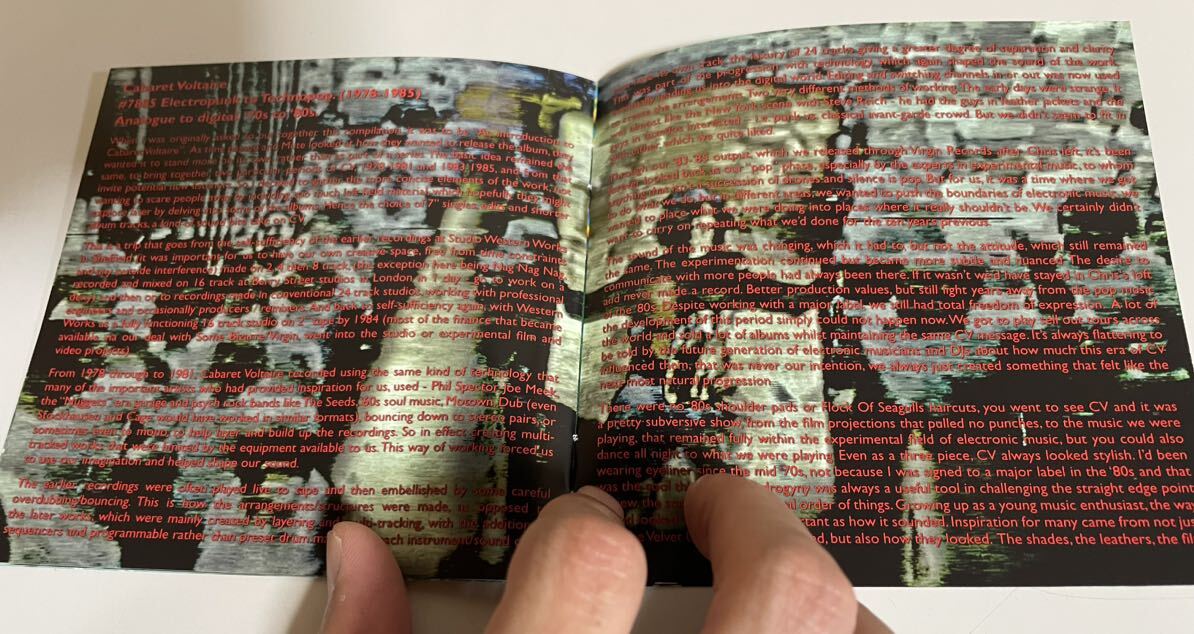 Cabaret Voltaire
#7885 Electropunk to Technopop. (1978-1985)
Analogue to digital. '70s to '80s.
When I was originally asked to put together this compilation it was to be "An introduction to
Cabaret Voltaire". As time and Mute looked at how they wanted to release the album, they
wanted it to stand more on its own rather than as part of a series. The basic idea remained the
same, to bring together the periods of 1978-1981 and 1983-1985, and from that
invite potential new more concise elements of the work, not
wanting to scare people away by much left field material, which hopefully they might
explore later by delving into albums. Hence the choice of 7" singles, edits and shorter
album tracks, a kind of CV.
This is a trip that goes from the self-sufficiency of the earlier recordings at Studio Western Works
in Sheffield (it was important for us to have our own creative space, free from time constraints
and any outside interference), made on 2, 4 then 8 track, (the exception here being Nag Nag Nag,
recorded and mixed on 16 track at Berry Street studios in London in a day) - to work on a
and then on to recordings made in conventional 24 track studios, working with professional
engineers and occasionally producers / remixers. And back to self-sufficiency again, with Western
Works as a fully functioning 16 track studio on 2" tape by 1984 (most of the finance that became
available via our deal with Some Bizzare/Virgin, went into the studio or experimental film and
video projects).
From 1978 through to 1981, Cabaret Voltaire recorded using the same kind of technology that
many of the important artists who had provided inspiration for us, used - Phil Spector, Joe Meek,
the "Nuggets" era garage and psych rock bands like The Seeds, '60s soul music, Motown, Dub (even
Stockhausen and Cage would have worked in similar formats), bouncing down to stereo pairs, or
sometimes even to mono to help layer and build up the recordings. So in effect creating multi-
tracked works that were limited by the equipment available to us. This way of working forced us
to use our imagination and helped shape our sound.
The earlier recordings were often played live to tape and then embellished by some careful
overdubbing/bouncing. This is how the arrangements/structures were made, as opposed to
the later works, which were mainly created by layering and multi-tracking, with the addition of
sequencers and programmable rather than preset drum ach instrument/sound
own track, the luxury of 24 tracks giving a greater degree of separation and clarity
This was part of the progression with technology which again shaped the sound of the work
us into the digital world. Editing and switching channels in or out was now used
to create the arrangements. Two very different methods of working. The early days were strange. It
was almost like the New York scene with Steve Reich - he had the guys in leather jackets and the
guys in tuxedos interested - i.e. punk vs. classical avant-garde crowd. But we didn't seem to fit in
either, which we quite liked.
our '83-'85 output, which we released through Virgin Records after Chris left, it's been
looked back on as our 'pop' phase, especially by the experts in experimental music, to whom
anything but a succession of drones and silence is pop. But for us, it was a time where we got
to do what we do, but in different areas; we wanted to push the boundaries of electronic music, we
wanted to place what we were doing into places where it really shouldn't be. We certainly didn't
want to carry on repeating what we'd done for the ten years previous.
The sound of the music was changing, which it had to, but not the attitude, which still remained
the same. The experimentation continued but became more subtle and nuanced. The desire to
communicate with more people had always been there. If it wasn't we'd have stayed in Chris's loft
and never made a record. Better production values, but still light years away from the pop music
of the '80s. Despite working with a major label, we still had total freedom of expression. A lot of
the development of this period simply could not happen now. We got to play sell out tours across
the world and sold a lot of albums whilst maintaining the same CV message. It's always flattering to
be told by the future generation of electronic musicians and DJs about how much this era of CV
influenced them; that was never our intention, we always just created something that felt like the
next most natural progression.
There were no '80s shoulder pads or Flock Of Seagulls haircuts, you went to see CV and it was
a pretty subversive show, from the film projections that pulled no punches, to the music we were
playing, that remained fully within the experimental field of electronic music, but you could also
dance all night to what we were playing. Even as a three piece, CV always looked stylish. I'd been
wearing eyeliner since the mid '70s, not because I was signed to a major label in the '80s and that
was the drogyny was always a useful tool in challenging the straight edge point
al order of things. Growing up as a young music enthusiast, the way
tant as how it sounded. Inspiration for many came from not jus
Velvet d, but also how they looked. The shades, the leathers, the fil